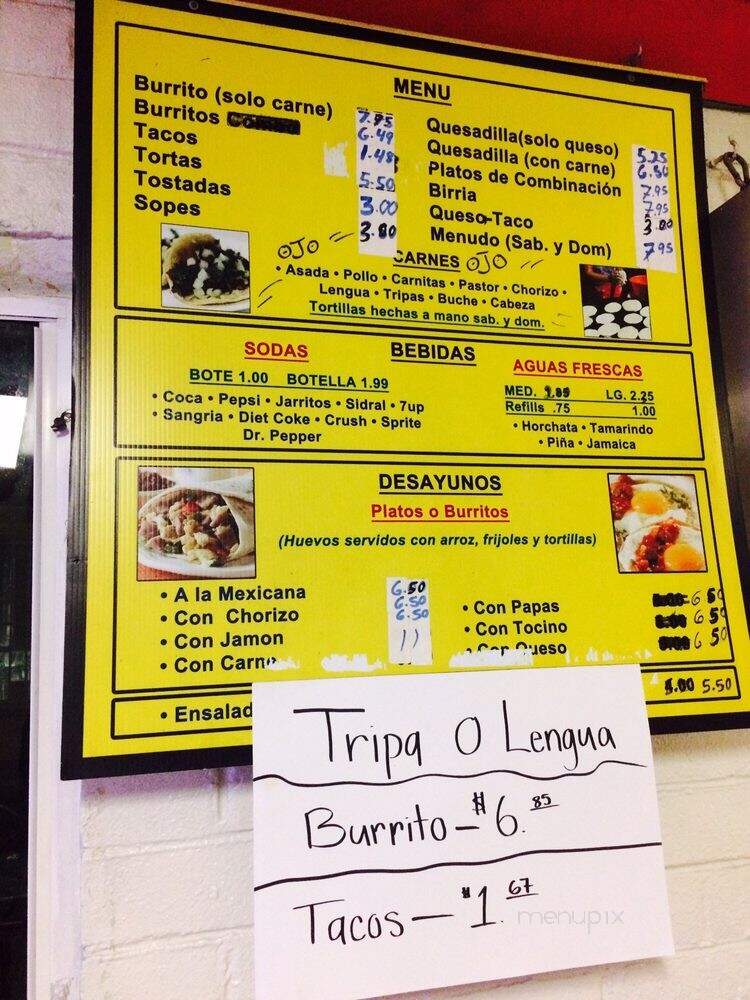 MENU
Burrito (solo carne) 7.95
Burritos 6.49
Tacos 1.48
Tortas 5.50
Tostadas 3.00
Sopes 3.80
Quesadilla(solo queso) 5.25
Quesadilla (con carne) 6.50
Platos de Combinación 7.95
Birria 7.95
Queso-Taco 3.00
Menudo (Sab. y Dom) 7.95
OJO CARNES OJO
• Asada • Pollo • Carnitas • Pastor • Chorizo •
Lengua • Tripas • Buche • Cabeza
Tortillas hechas a mano sab. y dom.
BEBIDAS
SODAS
BOTE 1.00 BOTELLA 1.99
• Coca • Pepsi • Jarritos • Sidral • 7up
• Sangria • Diet Coke • Crush • Sprite
Dr. Pepper
AGUAS FRESCAS
MED. LG. 2.25
Refills .75 1.00
• Horchata • Tamarindo
• Piña • Jamaica
DESAYUNOS
Platos o Burritos
(Huevos servidos con arroz, frijoles y tortillas)
• A la Mexicana 6.50
• Con Chorizo 6.50
• Con Jamon 6.50
• Con Carne 11
• Con Papas 6 50
• Con Tocino 6 50
• Con Queso 6 50
• Ensalad 5.50
Tripa O Lengua
Burrito - $6.85
Tacos - $1.67
menupix